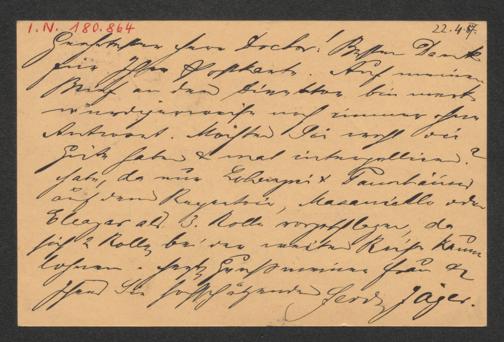 I.N. 180.864
22.4.
Geehrtester Herr Doctor! Besten Dank
für Ihre Postkarte. Auf meinen
Brief an den Direktor bin merk-
würdigerweise noch immer ohne
Antwort. Möchten Sie wohl die
Güte haben & mal interpellieren?
habe, da nur Lohengrin & Tannhäuser
auf dem Repertoir, Masaniello oder
Eleazar als 3. Rolle vorgeschlagen, da
sich 2 Rollen bei der weiten Reise kaum
lohnen. Herzl. Gruß meiner Frau &
Ihres Sie hochschätzenden Ferd. Jäger.